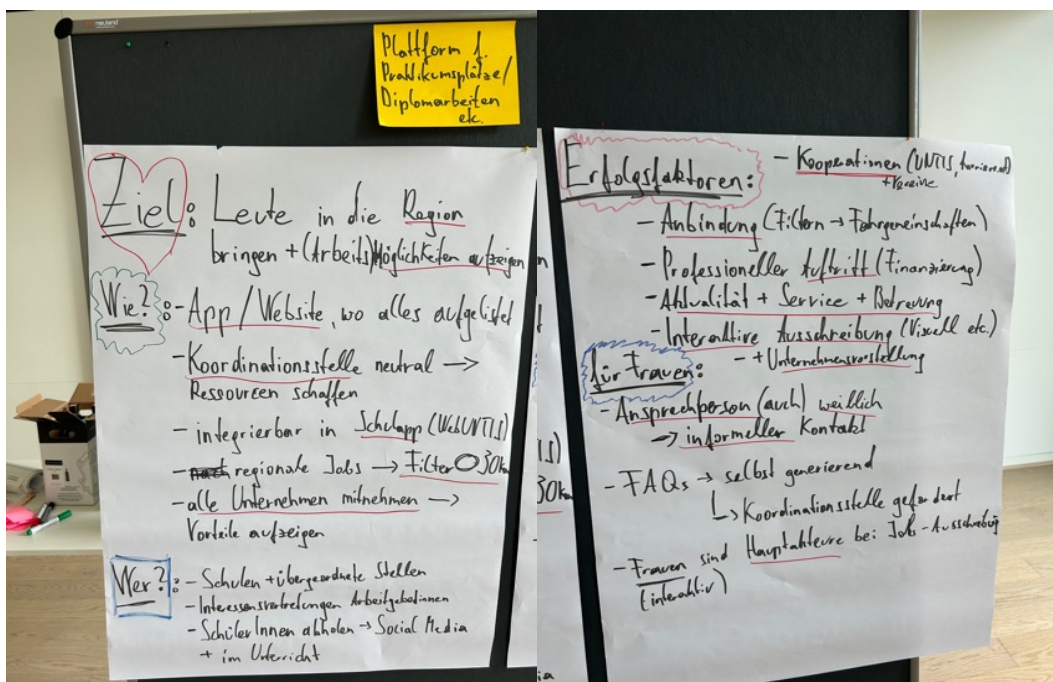 neuland
Plattform f.
Praktikumsplätze/
Diplomarbeiten
etc.
Ziel: Leute in die Region
bringen + (Arbeits)Möglichkeiten aufzeigen
Wie?: - App/Website, wo alles aufgelistet
- Koordinationsstelle neutral →
Ressourcen schaffen
- integrierbar in Schulapp (WebUNTIS)
- regionale Jobs → Filter 30km
- alle Unternehmen mitnehmen →
Vorteile aufzeigen
Wer?: - Schulen + übergeordnete Stellen
- Interessensvertretungen ArbeitgeberInnen
- SchülerInnen abholen → Social Media
+ im Unterricht
Erfolgsfaktoren: - Kooperationen (UNTIS, karriere.at)
+ Vereine
- Anbindung (Filtern → Fahrgemeinschaften)
- Professioneller Auftritt (Finanzierung)
- Aktualität + Service + Betreuung
- Interaktive Ausschreibung (Visuell etc.)
- + Unternehmensvorstellung
für Frauen:
- Ansprechperson (auch) weiblich
→ informeller Kontakt
- FAQs → selbst generierend
↳ Koordinationsstelle gefordert
- Frauen sind Hauptakteure bei Jobs-Ausschreibung
(interaktiv)